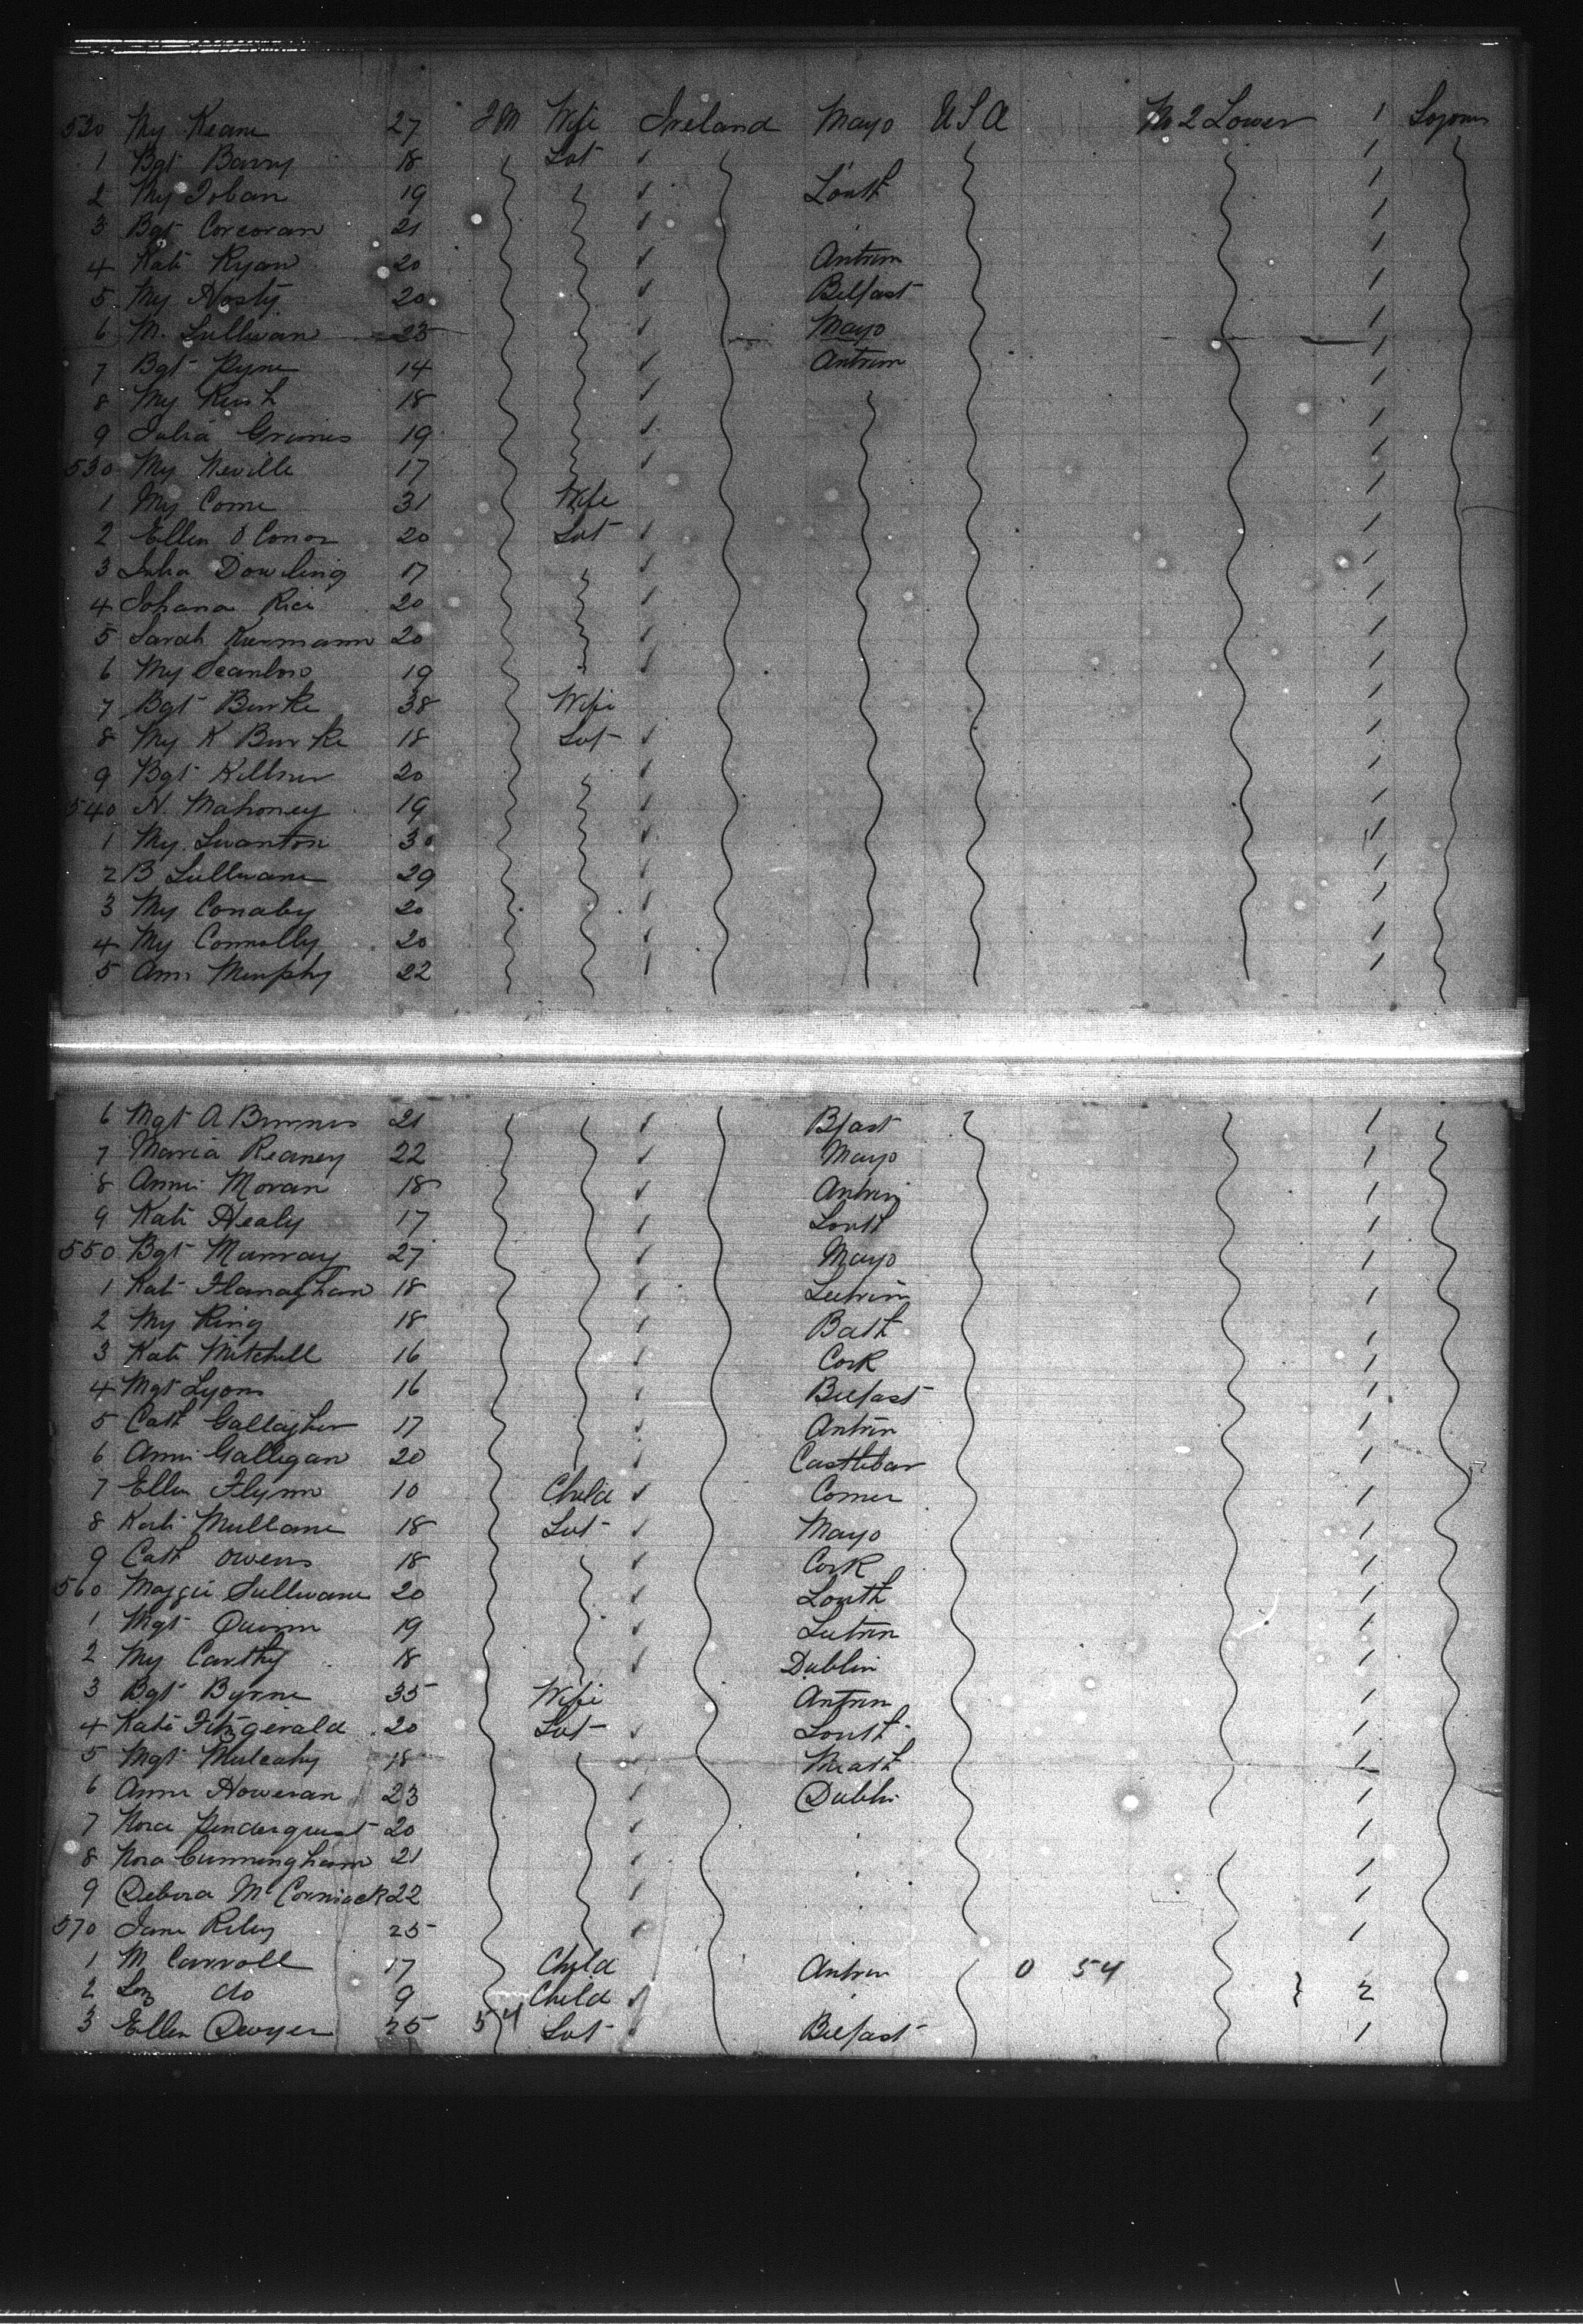 520 My Keane 27 F M Wife Ireland Mayo U S A No 2 Lower 1 Sojourn
1 Bgt Barry 18 Sst 1
2 My Toban 19 Louth 1
3 Bgt Corcoran 21 1
4 Kate Ryan 20 Antrim 1
5 My Hosty 20 Belfast 1
6 M. Sullivan 23 Mayo 1
7 Bgt Pyne 14 Antrim 1
8 My 18 1
9 Julia Grimes 19 1
530 My Neville 17 1
1 My Come 31 Wife 1
2 Ellen O Conor 20 Sst 1
3 Julia Dowling 17 1
4 Johana Rice 20 1
5 Sarah 20 1
6 My Scanlon 19 1
7 Bgt Burke 38 Wife 1
8 My K Burke 18 Sst 1
9 Bgt 20 1
540 N. Mahoney 19 1
1 My Swanton 30 1
2 B Sullivan 29 1
3 My Conaby 20 1
4 My Connolly 20 1
5 Ann Murphy 22 1
6 Mgt A 21 Bfast 1
7 Maria Reaney 22 Mayo 1
8 Annie Moran 18 Antrim 1
9 Kate Healy 17 Louth 1
550 Bgt Murray 27 Mayo 1
1 Kate Flanaghan 18 Leitrim 1
2 My Ring 18 Bath 1
3 Kate Mitchell 16 Cork 1
4 Mgt Lyons 16 Belfast 1
5 Cath Gallagher 17 Antrim 1
6 Annie Galligan 20 Castlebar 1
7 Ellen Flynn 10 Child Comer 1
8 Kate Mullane 18 Sst Mayo 1
9 Cath Owens 18 Cork 1
560 Maggie Sullivan 20 Louth 1
1 Mgt Quinn 19 Leitrim 1
2 My Carthy 18 Dublin 1
3 Bgt Byrne 35 Wife Antrim 1
4 Kate Fitzgerald 20 Sst Louth 1
5 Mgt Mulcahy 18 Meath 1
6 Anne Howeran 23 Dublin 1
7 Nora Pendergrast 20 1
8 Nora Cunningham 21 1
9 Debora McCormack 22 1
570 Jane Riley 25 1
1 M Carroll 17 Child Antrim 0 54
2 do 9 Child } 2
3 Ellen Dwyer 25 54 Sst Belfast 1